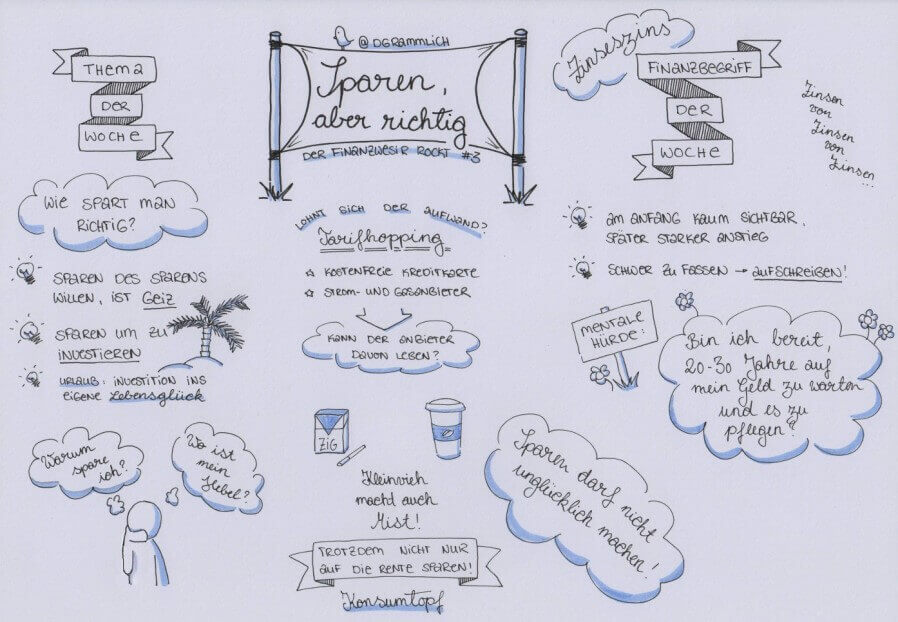 @DGRAMMLICH
Sparen,
aber richtig
DER FINANZWESIR ROCKT #3
THEMA
DER
WOCHE
WIE SPART MAN
RICHTIG?
SPAREN DES SPARENS
WILLEN, IST GEIZ
SPAREN UM ZU
INVESTIEREN
URLAUB: INVESTITION INS
EIGENE Lebensglück
Warum
spare
ich?
Wo ist
mein
Hebel?
LOHNT SICH DER AUFWAND?
Tarifhopping
KOSTENFREIE KREDITKARTE
STROM- UND GASANBIETER
KANN DER ANBIETER
DAVON LEBEN?
ZIG
Kleinvieh
macht auch
Mist!
TROTZDEM NICHT NUR
AUF DIE RENTE SPAREN!
Konsumtopf
Zinseszins
FINANZBEGRIFF
DER
WOCHE
Zinsen
von
Zinsen
von
Zinsen...
AM ANFANG KAUM SICHTBAR,
SPÄTER STARKER ANSTIEG
SCHWER ZU FASSEN → AUFSCHREIBEN!
MENTALE
HÜRDE:
Bin ich bereit,
20-30 Jahre auf
mein Geld zu warten
und es zu
pflegen?
Sparen darf nicht
unglücklich machen!